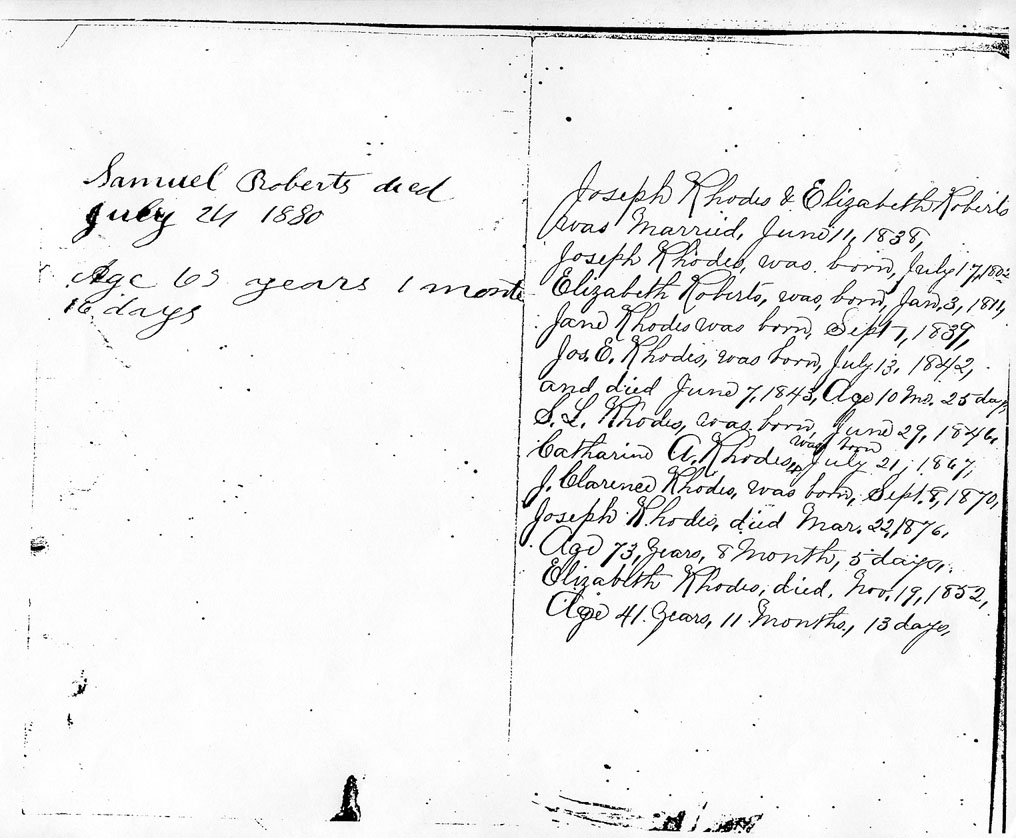 Samuel Roberts died
July 24 1880
Age 63 years 1 month
16 days
Joseph Rhodes & Elizabeth Roberts
was Married, June 11, 1838,
Joseph Rhodes, was born, July 17, 1802
Elizabeth Roberts, was, born, Jan. 3, 1811,
Jane Rhodes was born, Sept 7, 1839,
Jos. E. Rhodes, was born, July 13, 1842,
and died June 7, 1843, Age 10 Mo. 25 days
S. L. Rhodes, was born, June 29, 1846,
Catharine A. Rhodes, was born July 21, 1847
J. Clarence Rhodes, was born, Sept. 8, 1870,
Joseph Rhodes, died Mar. 22, 1876,
Age 73, Years, 8 Month, 5 days,
Elizabeth Rhodes, died, Nov. 19, 1852,
Age 41 Years, 11 Months, 13 days,